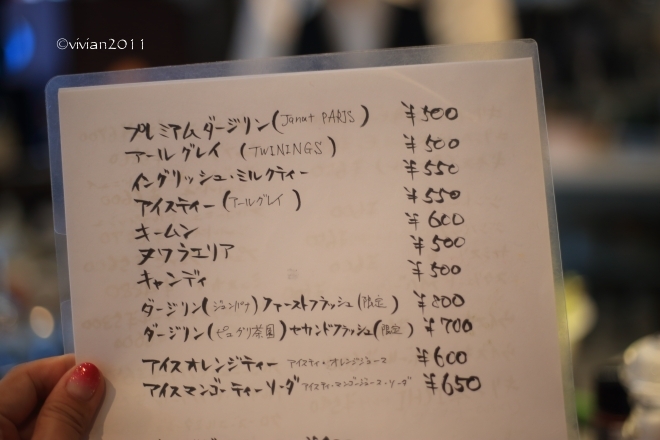 ©vivian2011
プレミアムダージリン(Janat PARIS) ¥500
アールグレイ (TWININGS) ¥500
イングリッシュ・ミルクティー ¥550
アイスティー(アールグレイ) ¥550
キームン ¥600
ヌワラエリア ¥500
キャンディ ¥500
ダージリン(ジュンパナ)ファーストフラッシュ(限定) ¥800
ダージリン(ピュグリ茶園)セカンドフラッシュ(限定) ¥700
アイスオレンジティー アイスティ・オレンジジュース ¥600
アイスマンゴーティーソーダ アイスティ・マンゴージュース・ソーダ ¥650